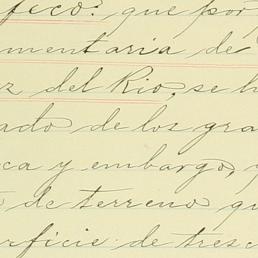 fico? que por
mentaria de
z del Rio, se h
ado de los gra
ca y embargo, y
de terreno qu
rficie de tresc